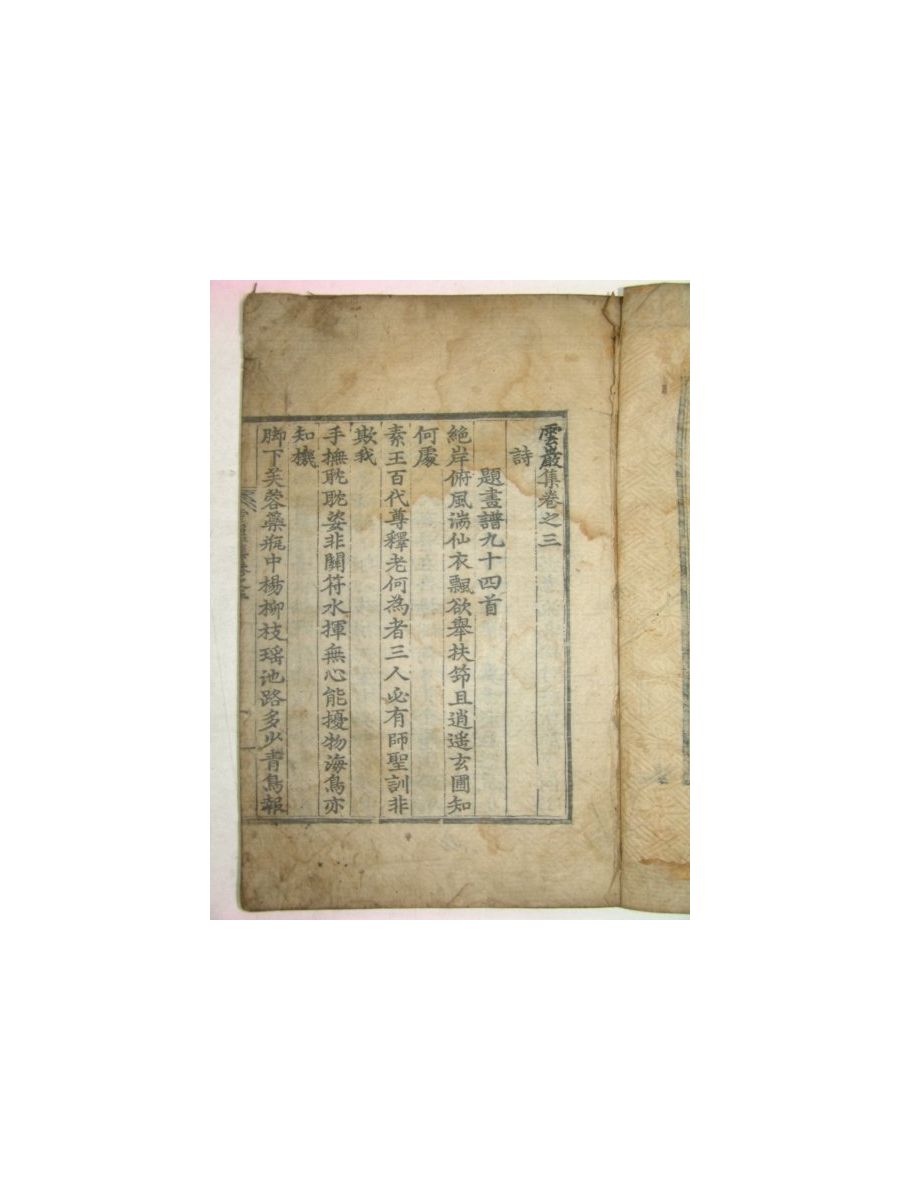 雲巖集卷之三
詩
題畫譜九十四首
絕岸俯風湍仙衣飄欲舉扶笻且逍遥玄圃知
何處
素王百代尊釋老何為者三人必有師聖訓非
欺我
手撫耽耽姿非關符水揮無心能擾物海鳥亦
知機
脚下芙蓉藥瓶中楊柳枝瑶池路多少青鳥報